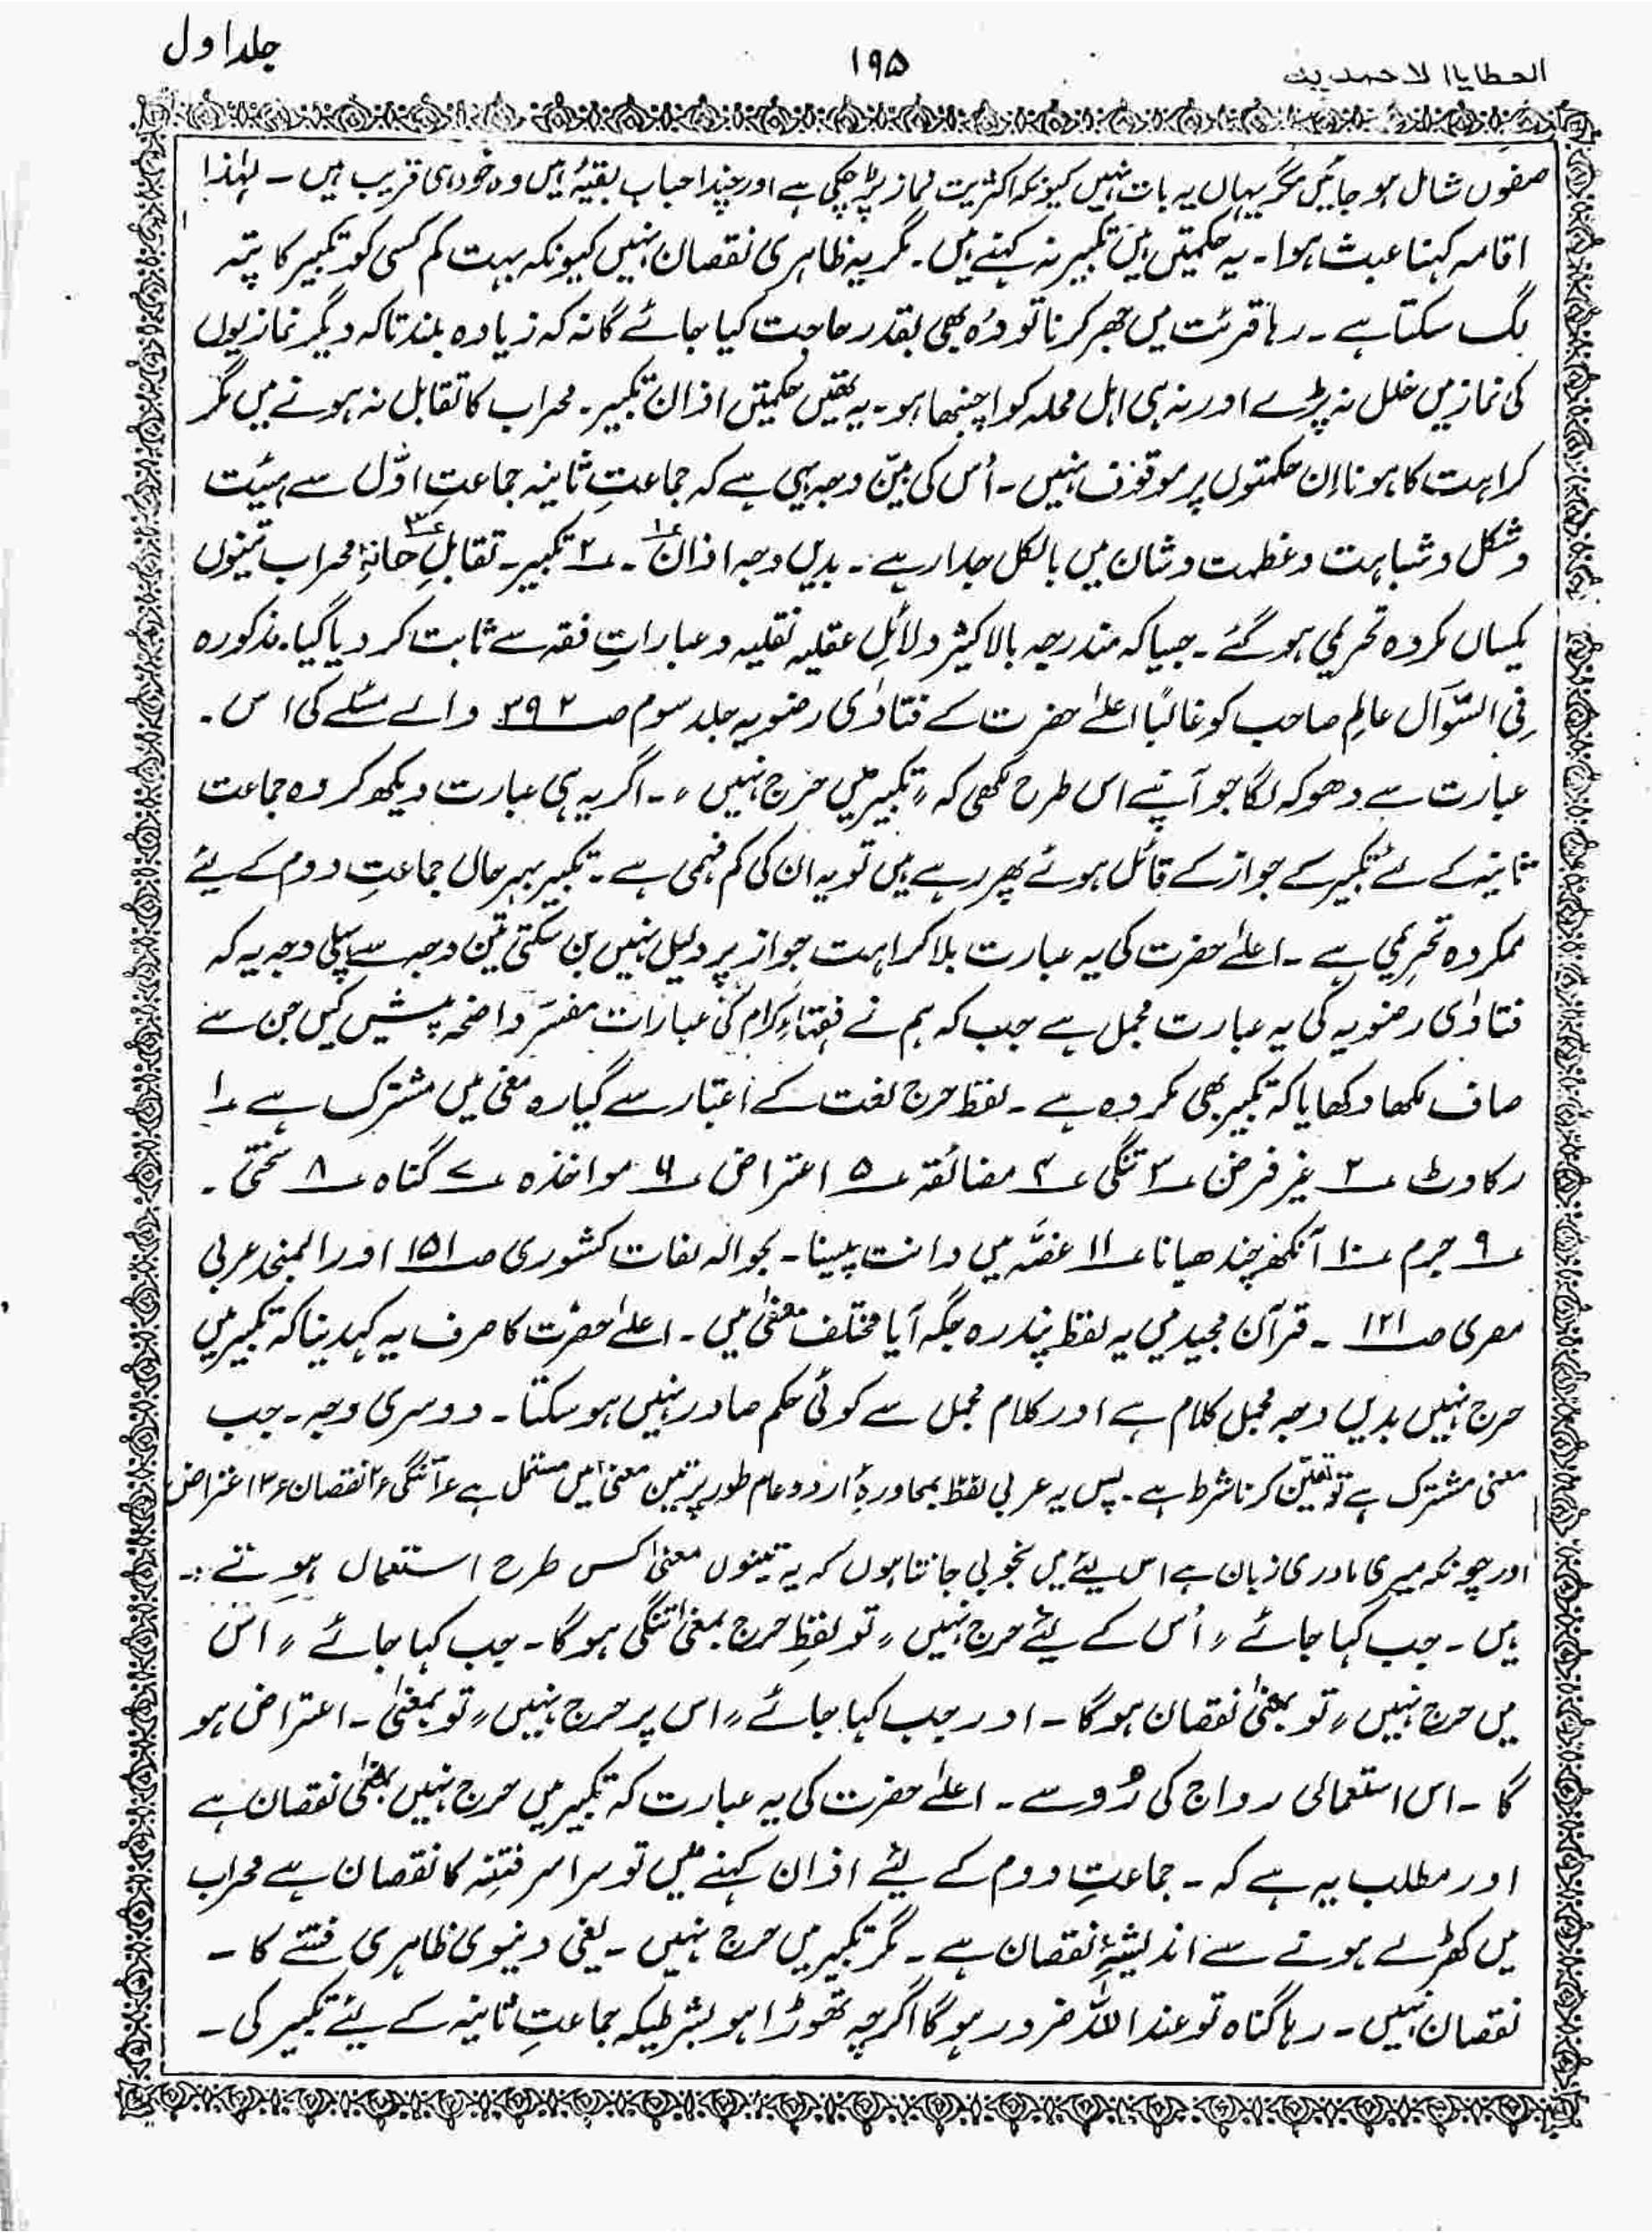 العطايا الاحمديه ۱۹۵ جلد اول
صفوں شامل ہو جائیں مگر یہاں یہ بات نہیں کیونکہ اکثریت نماز پڑھ چکی ہے اور چند احباب بقیہ ہیں وہ خود ہی قریب ہیں ۔ لہٰذا
اقامہ کہنا عبث ہوا ۔ یہ حکمتیں ہیں تکبیر نہ کہنے میں ۔ مگر یہ ظاہری نقصان نہیں کیونکہ بہت کم کسی کو تکبیر کا پتہ
لگ سکتا ہے ۔ رہا قرئت میں جہر کرنا تو وُہ بھی بقدر حاجت کیا جائے گا نہ کہ زیادہ بلند تاکہ دیگر نمازیوں
کی نماز میں خلل نہ پڑے اور نہ ہی اہل محلہ کو اچنبھا ہو ۔ یہ تھیں حکمتیں اذان تکبیر ۔ محراب کا تقابل نہ ہونے میں مگر
کراہت کا ہونا اِن حکمتوں پر موقوف نہیں ۔ اُس کی بیّن وجہ یہی ہے کہ جماعتِ ثانیہ جماعتِ اوّل سے ہیئت
و شکل و شباہت و عظمت و شان میں بالکل جدا رہے ۔ بدیں وجہ اذان ؁۱ ۔ ؁۲ تکبیر ۔ تقابلِ ؁۳ خانۂ محراب تینوں
یکساں مکروہ تحریمی ہو گئے ۔ جیسا کہ مندرجہ بالا کثیر دلائلِ عقلیہ نقلیہ و عباراتِ فقہ سے ثابت کر دیا گیا ۔ مذکورہ
فِی السَّوال عالِم صاحب کو غالباً اعلےٰ حضرت کے فتاوٰی رضویہ جلد سوم صـ ۳۹۲ والے مسئلے کی اس ۔
عبارت سے دھوکہ لگا جو آپنے اس طرح لکھی کہ " تکبیر میں حرج نہیں " ۔ اگر یہ ہی عبارت دیکھ کر وہ جماعت
ثانیہ کے لئے تکبیر کے جواز کے قائل ہوئے پھر رہے ہیں تو یہ ان کی کم فہمی ہے ۔ تکبیر بہر حال جماعتِ دوم کے لیئے
مکروہ تحریمی ہے ۔ اعلےٰ حضرت کی یہ عبارت بلا کراہت جواز پر دلیل نہیں بن سکتی تین وجہ سے پہلی وجہ یہ کہ
فتاوٰی رضویہ کی یہ عبارت مجمل ہے جب کہ ہم نے فقہاءِ کرام کی عبارات مفسَّر واضحہ پیش کیں جن سے
صاف لکھا دکھایا کہ تکبیر بھی مکروہ ہے ۔ لفظ حرج لغت کے اعتبار سے گیارہ معنٰی میں مشترک ہے ؁۱
رکاوٹ ؁۲ غیر فرض ؁۳ تنگی ؁۴ مضائقہ ؁۵ اعتراض ؁۶ مواخذہ ؁۷ گناہ ؁۸ سختی ۔
؁۹ جرم ؁۱۰ آنکھ چندھیانا ؁۱۱ غصّہ میں دانت پیسنا ۔ بحوالہ لغات کشوری صـ ۱۵۱ اور المنجد عربی
مصری صـ ۱۲۱ ۔ قرآن مجید میں یہ لفظ پندرہ جگہ آیا مختلف معنٰی میں ۔ اعلےٰ حضرت کا صرف یہ کہدینا کہ تکبیر میں
حرج نہیں بدیں وجہ مجمل کلام ہے اور کلام مجمل سے کوئی حکم صادر نہیں ہو سکتا ۔ دوسری وجہ ۔ جب
معنٰی مشترک ہے تو تعیّن کرنا شرط ہے ۔ پس یہ عربی لفظ بمحاورۂِ اُردو عام طور پر تین معنٰی میں مستعمل ہے ؁۱ تنگی ؁۲ نقصان ؁۳ اعتراض
اور چونکہ میری مادری زبان ہے اس لیئے میں بخوبی جانتا ہوں کہ یہ تینوں معنٰی کس طرح استعمال ہوتے :۔
ہیں ۔ جب کہا جائے " اُس کے لیئے حرج نہیں " تو لفظِ حرج بمعنیٰ تنگی ہو گا ۔ جب کہا جائے " اس
میں حرج نہیں " تو بمعنیٰ نقصان ہو گا ۔ اور جب کہا جائے " اس پر حرج نہیں " تو بمعنیٰ ۔ اعتراض ہو
گا ۔ اس استعمالی رواج کی رُو سے ۔ اعلےٰ حضرت کی یہ عبارت کہ تکبیر میں حرج نہیں بمعنیٰ نقصان ہے
اور مطلب یہ ہے کہ ۔ جماعتِ دوم کے لیئے اذان کہنے میں تو سراسر فتنہ کا نقصان ہے محراب
میں کھڑے ہونے سے اندیشۂِ نقصان ہے ۔ مگر تکبیر میں حرج نہیں ۔ یعنی دنیوی ظاہری فتنے کا ۔
نقصان نہیں ۔ رہا گناہ تو عند اللہ ضرور ہو گا اگرچہ تھوڑا ہو بشرطیکہ جماعتِ ثانیہ کے لیئے تکبیر کی ۔